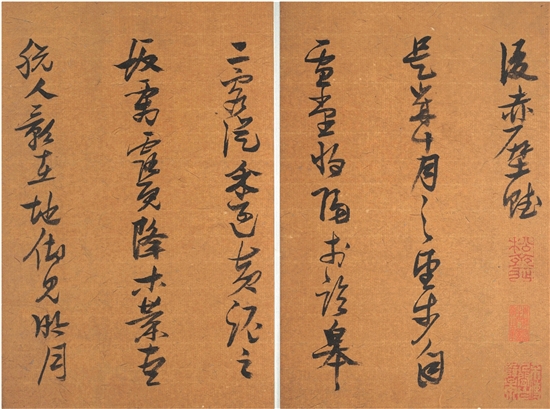 後赤壁賦
是歲十月之望步自
雪堂將歸於臨皋
二客從余過黃泥之
坂霜露既降木葉盡
脫人影在地仰見明月